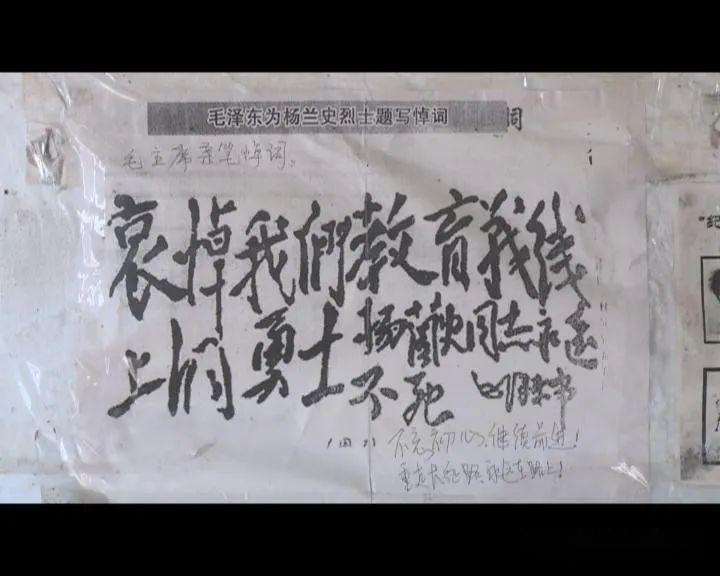 毛泽东为杨兰史烈士题写悼词 词
毛主席亲笔悼词。
哀悼我們教育战线
上的勇士杨蘭史同志永远
不死
不忘初心、继续前进!
重走长征路永远在路上!
"纪